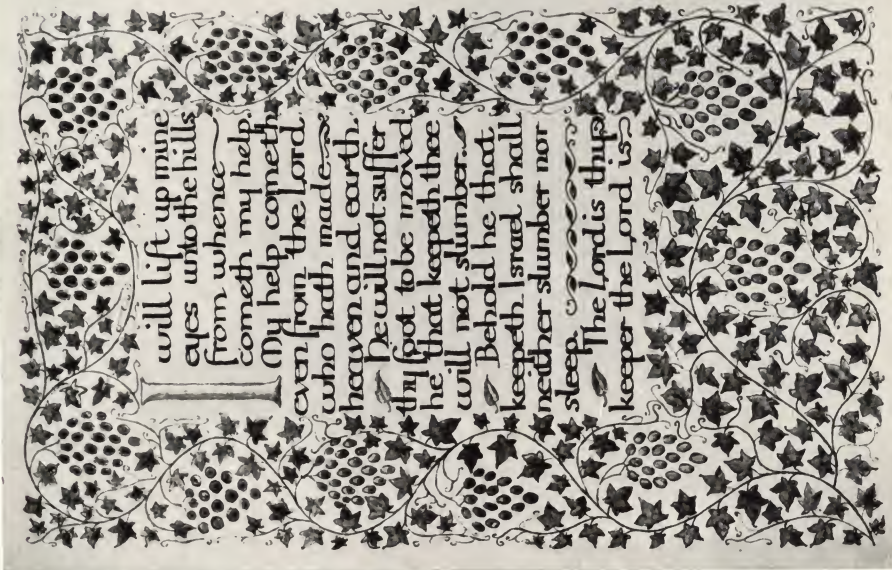 I will lift up mine
eyes unto the hills
from whence
cometh my help.
My help cometh
even from the Lord.
who hath made
heaven and earth.
He will not suffer
thy foot to be moved
he that keepeth thee
will not slumber.
Behold he that
keepeth Israel shall
neither slumber nor
sleep.
The Lord is thy
keeper the Lord is